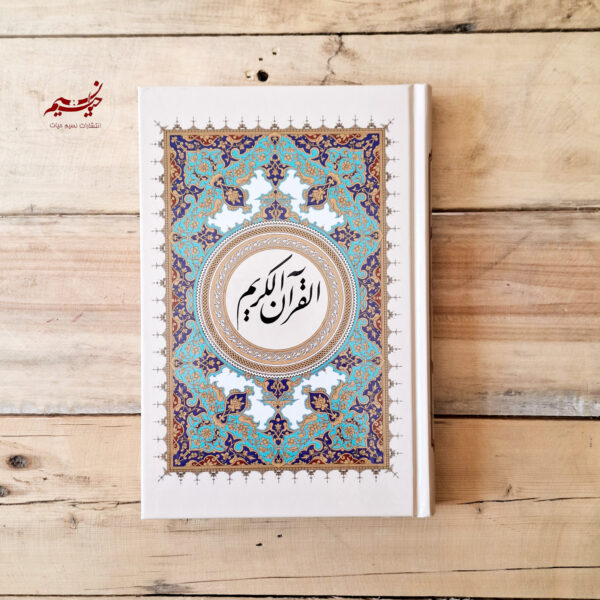 نسیم حیات
انتشارات نسیم حیات
القرآن الكريم